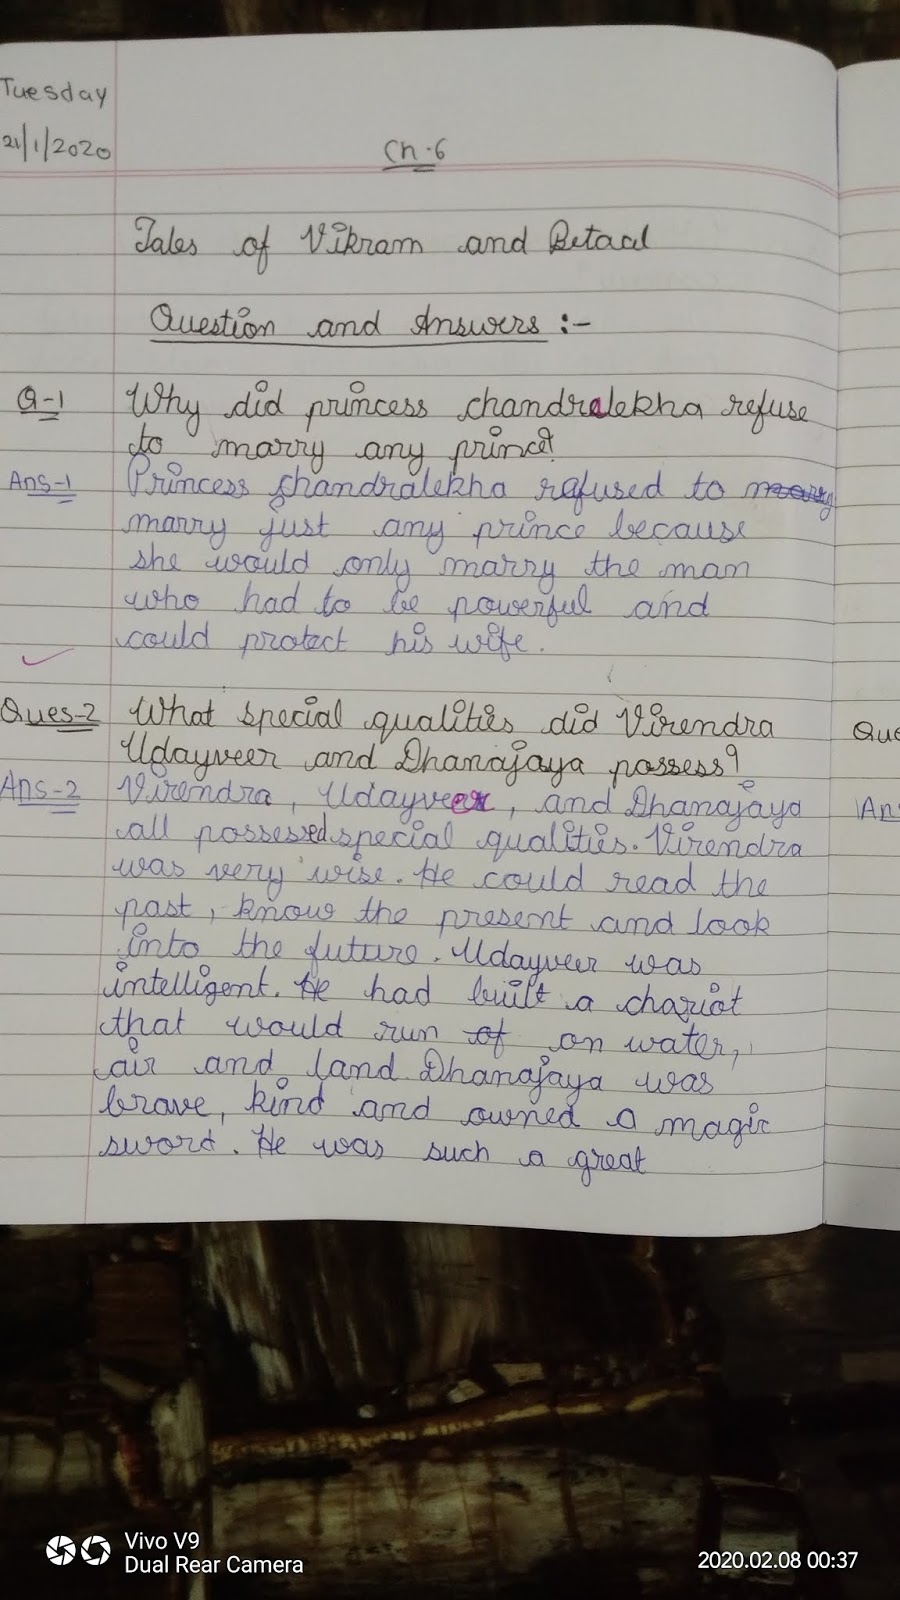 Tuesday
21/1/2020
Ch-6
Tales of Vikram and Betaal
Question and Answers :-
Q-1 Why did princess chandralekha refuse
to marry any prince?
Ans-1 Princess chandralekha refused to marry
marry just any prince because
she would only marry the man
who had to be powerful and
could protect his wife.
Ques-2 What special qualities did Virendra
Udayveer and Dhanajaya possess?
Ans-2 Virendra, Udayveer, and Dhanajaya
all possessed special qualities. Virendra
was very wise. He could read the
past, know the present and look
into the future. Udayveer was
intelligent. He had built a chariot
that would run of on water,
air and land Dhanajaya was
brave, kind and owned a magic
sword. He was such a great
Que
Ans
Vivo V9
Dual Rear Camera
2020.02.08 00:37